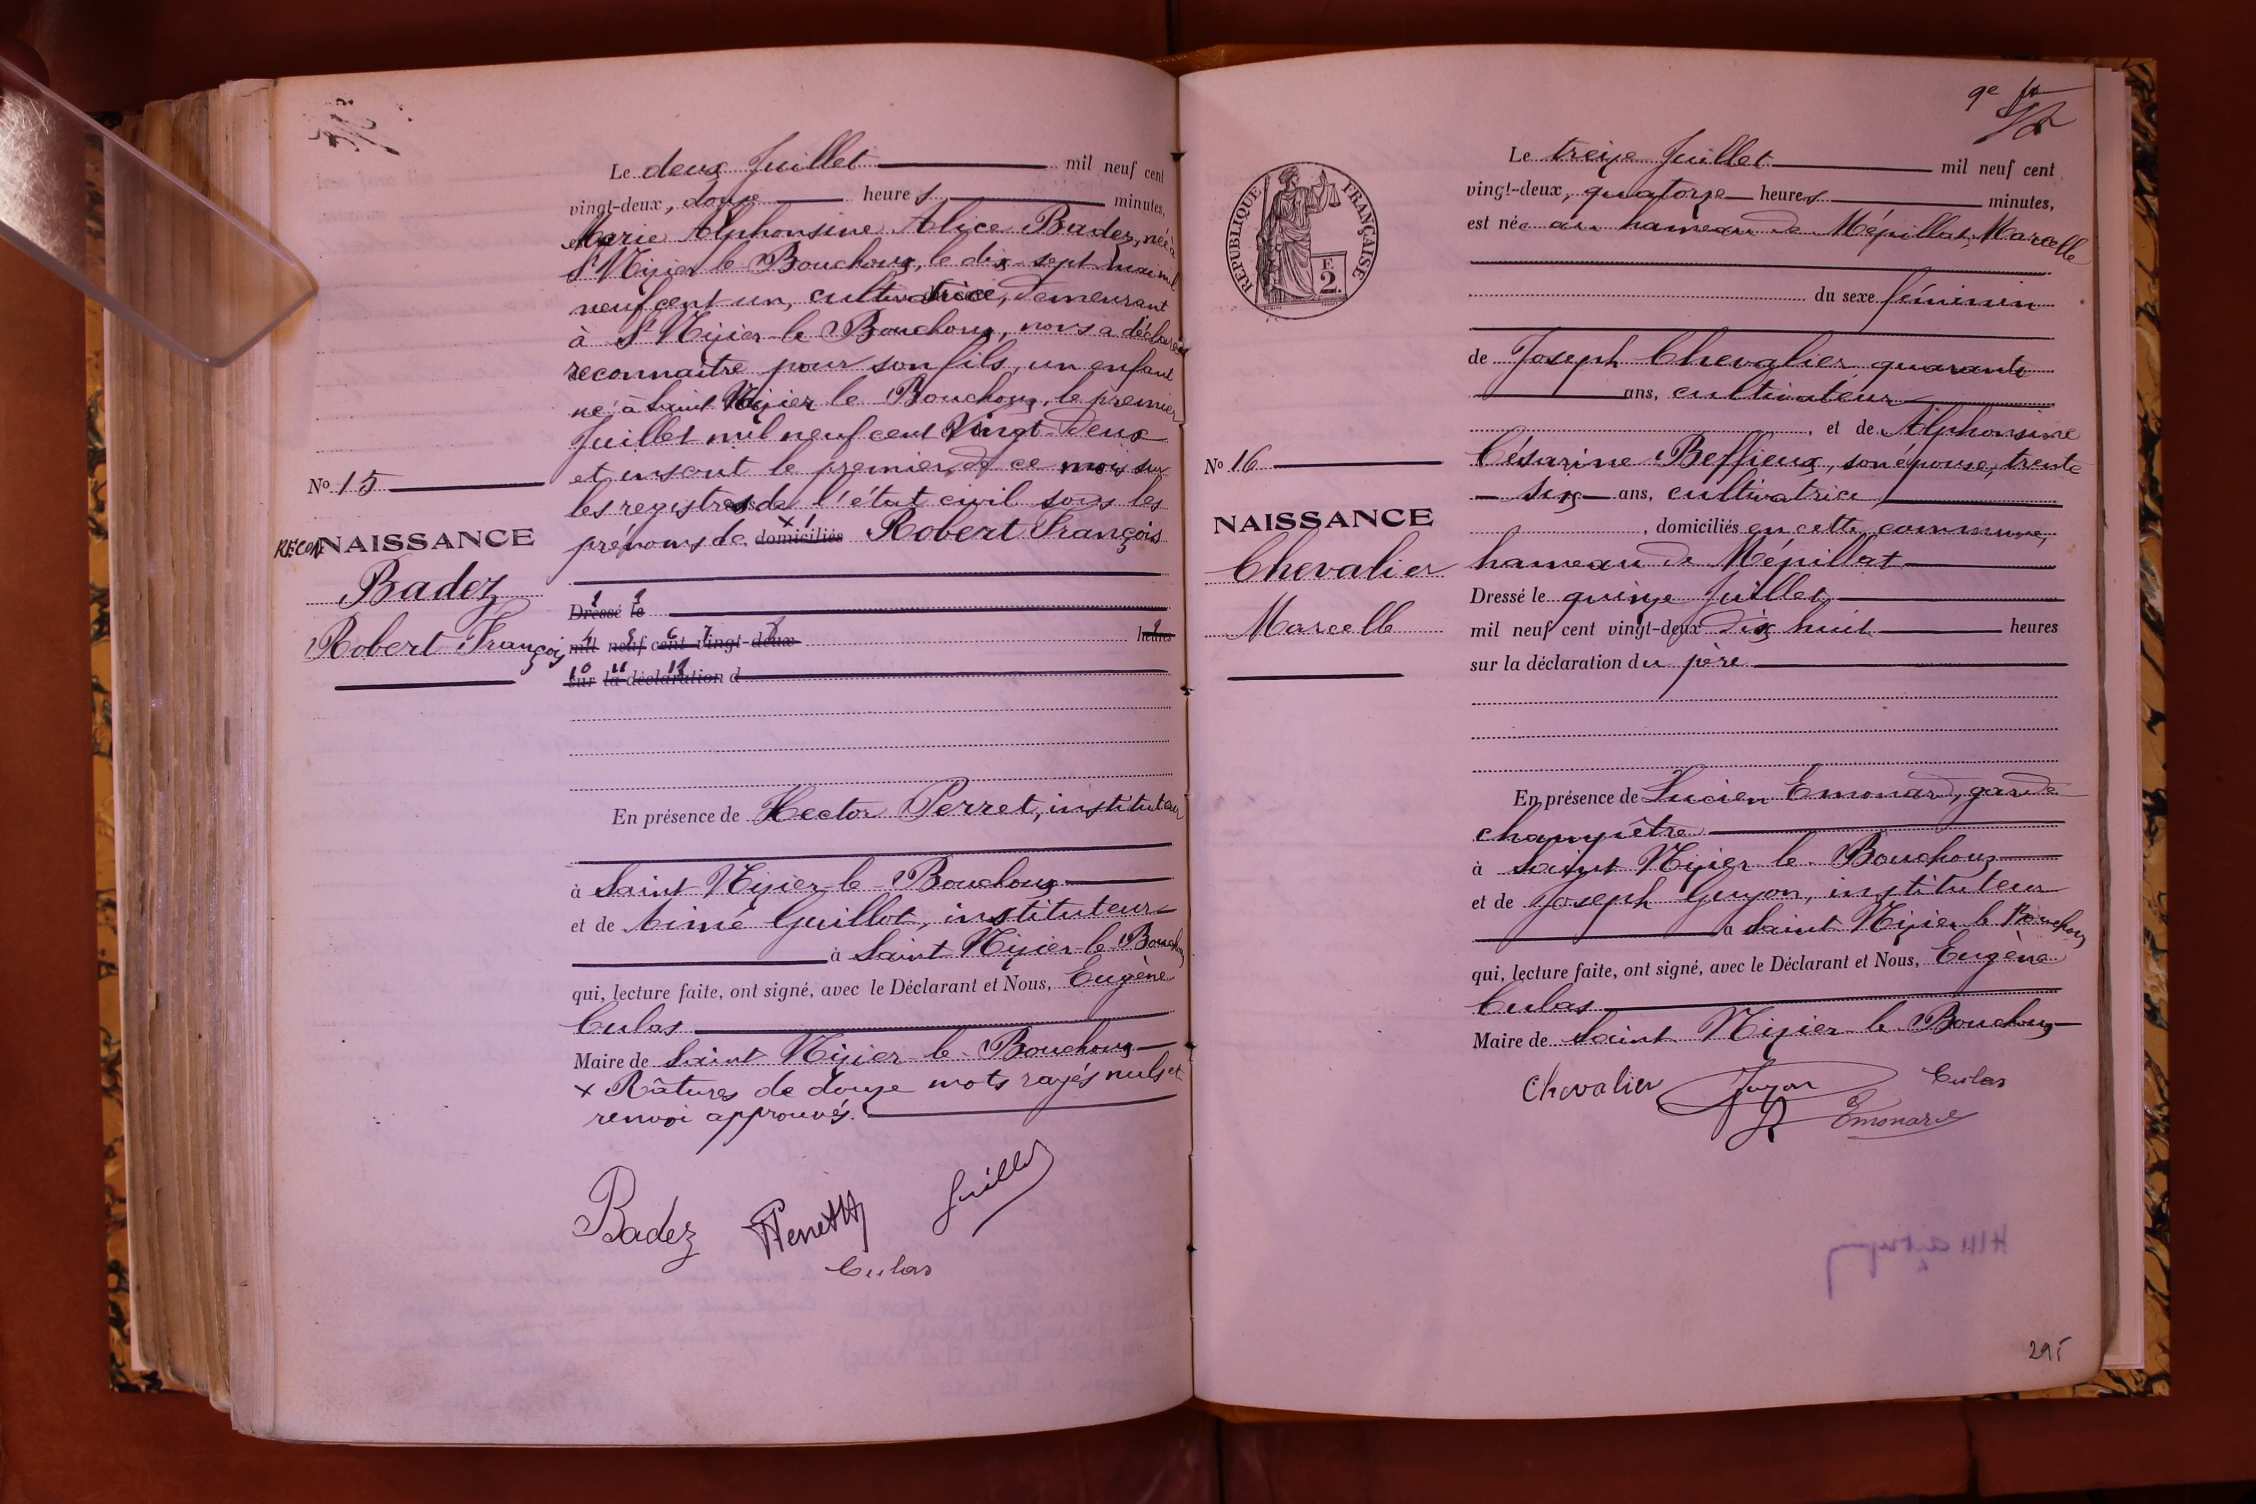 Le deux Juillet mil neuf cent
vingt-deux, douze heures minutes,
Marie Alphonsine Alice Badez, née à
St Nizier le Bouchoux, le dix sept mai mil
neuf cent un, cultivatrice, demeurant
à St Nizier le Bouchoux, nous a déclaré
reconnaître pour son fils, un enfant
né à Saint Nizier le Bouchoux, le premier
Juillet mil neuf cent vingt-deux
et inscrit le premier de ce mois sur
les registres de l'état civil sous les
prénoms de domiciliés Robert François
Dressé le
mil neuf cent vingt-deux heures
sur la déclaration d
No 15
RECON NAISSANCE
Badez
Robert François
En présence de Hector Perret, instituteur
à Saint Nizier le Bouchoux
et de Aimé Guillot, instituteur
à Saint Nizier le Bouchoux
qui, lecture faite, ont signé, avec le Déclarant et Nous, Eugène
Culas
Maire de Saint Nizier le Bouchoux
x Râtures de douze mots rayés nuls et
renvoi approuvés.
Badez Perret Guillot
Culas
9e
RÉPUBLIQUE FRANÇAISE
F.
2.
Le treize Juillet mil neuf cent
vingt-deux, quatorze heures minutes,
est née au hameau de Mépillat, Marcelle
du sexe féminin
de Joseph Chevalier quarante
ans, cultivateur
, et de Alphonsine
Césarine Beffieux, son épouse, trente
six ans, cultivatrice
, domiciliés en cette commune,
hameau de Mépillat
Dressé le quinze Juillet
mil neuf cent vingt-deux dix huit heures
sur la déclaration du père
No 16
NAISSANCE
Chevalier
Marcelle
En présence de Lucien Emonard, garde
champêtre
à Saint Nizier le Bouchoux
et de Joseph Guyon, instituteur
à Saint Nizier le Bouchoux
qui, lecture faite, ont signé, avec le Déclarant et Nous, Eugène
Culas
Maire de Saint Nizier le Bouchoux
Chevalier Guyon Culas
Emonard
295